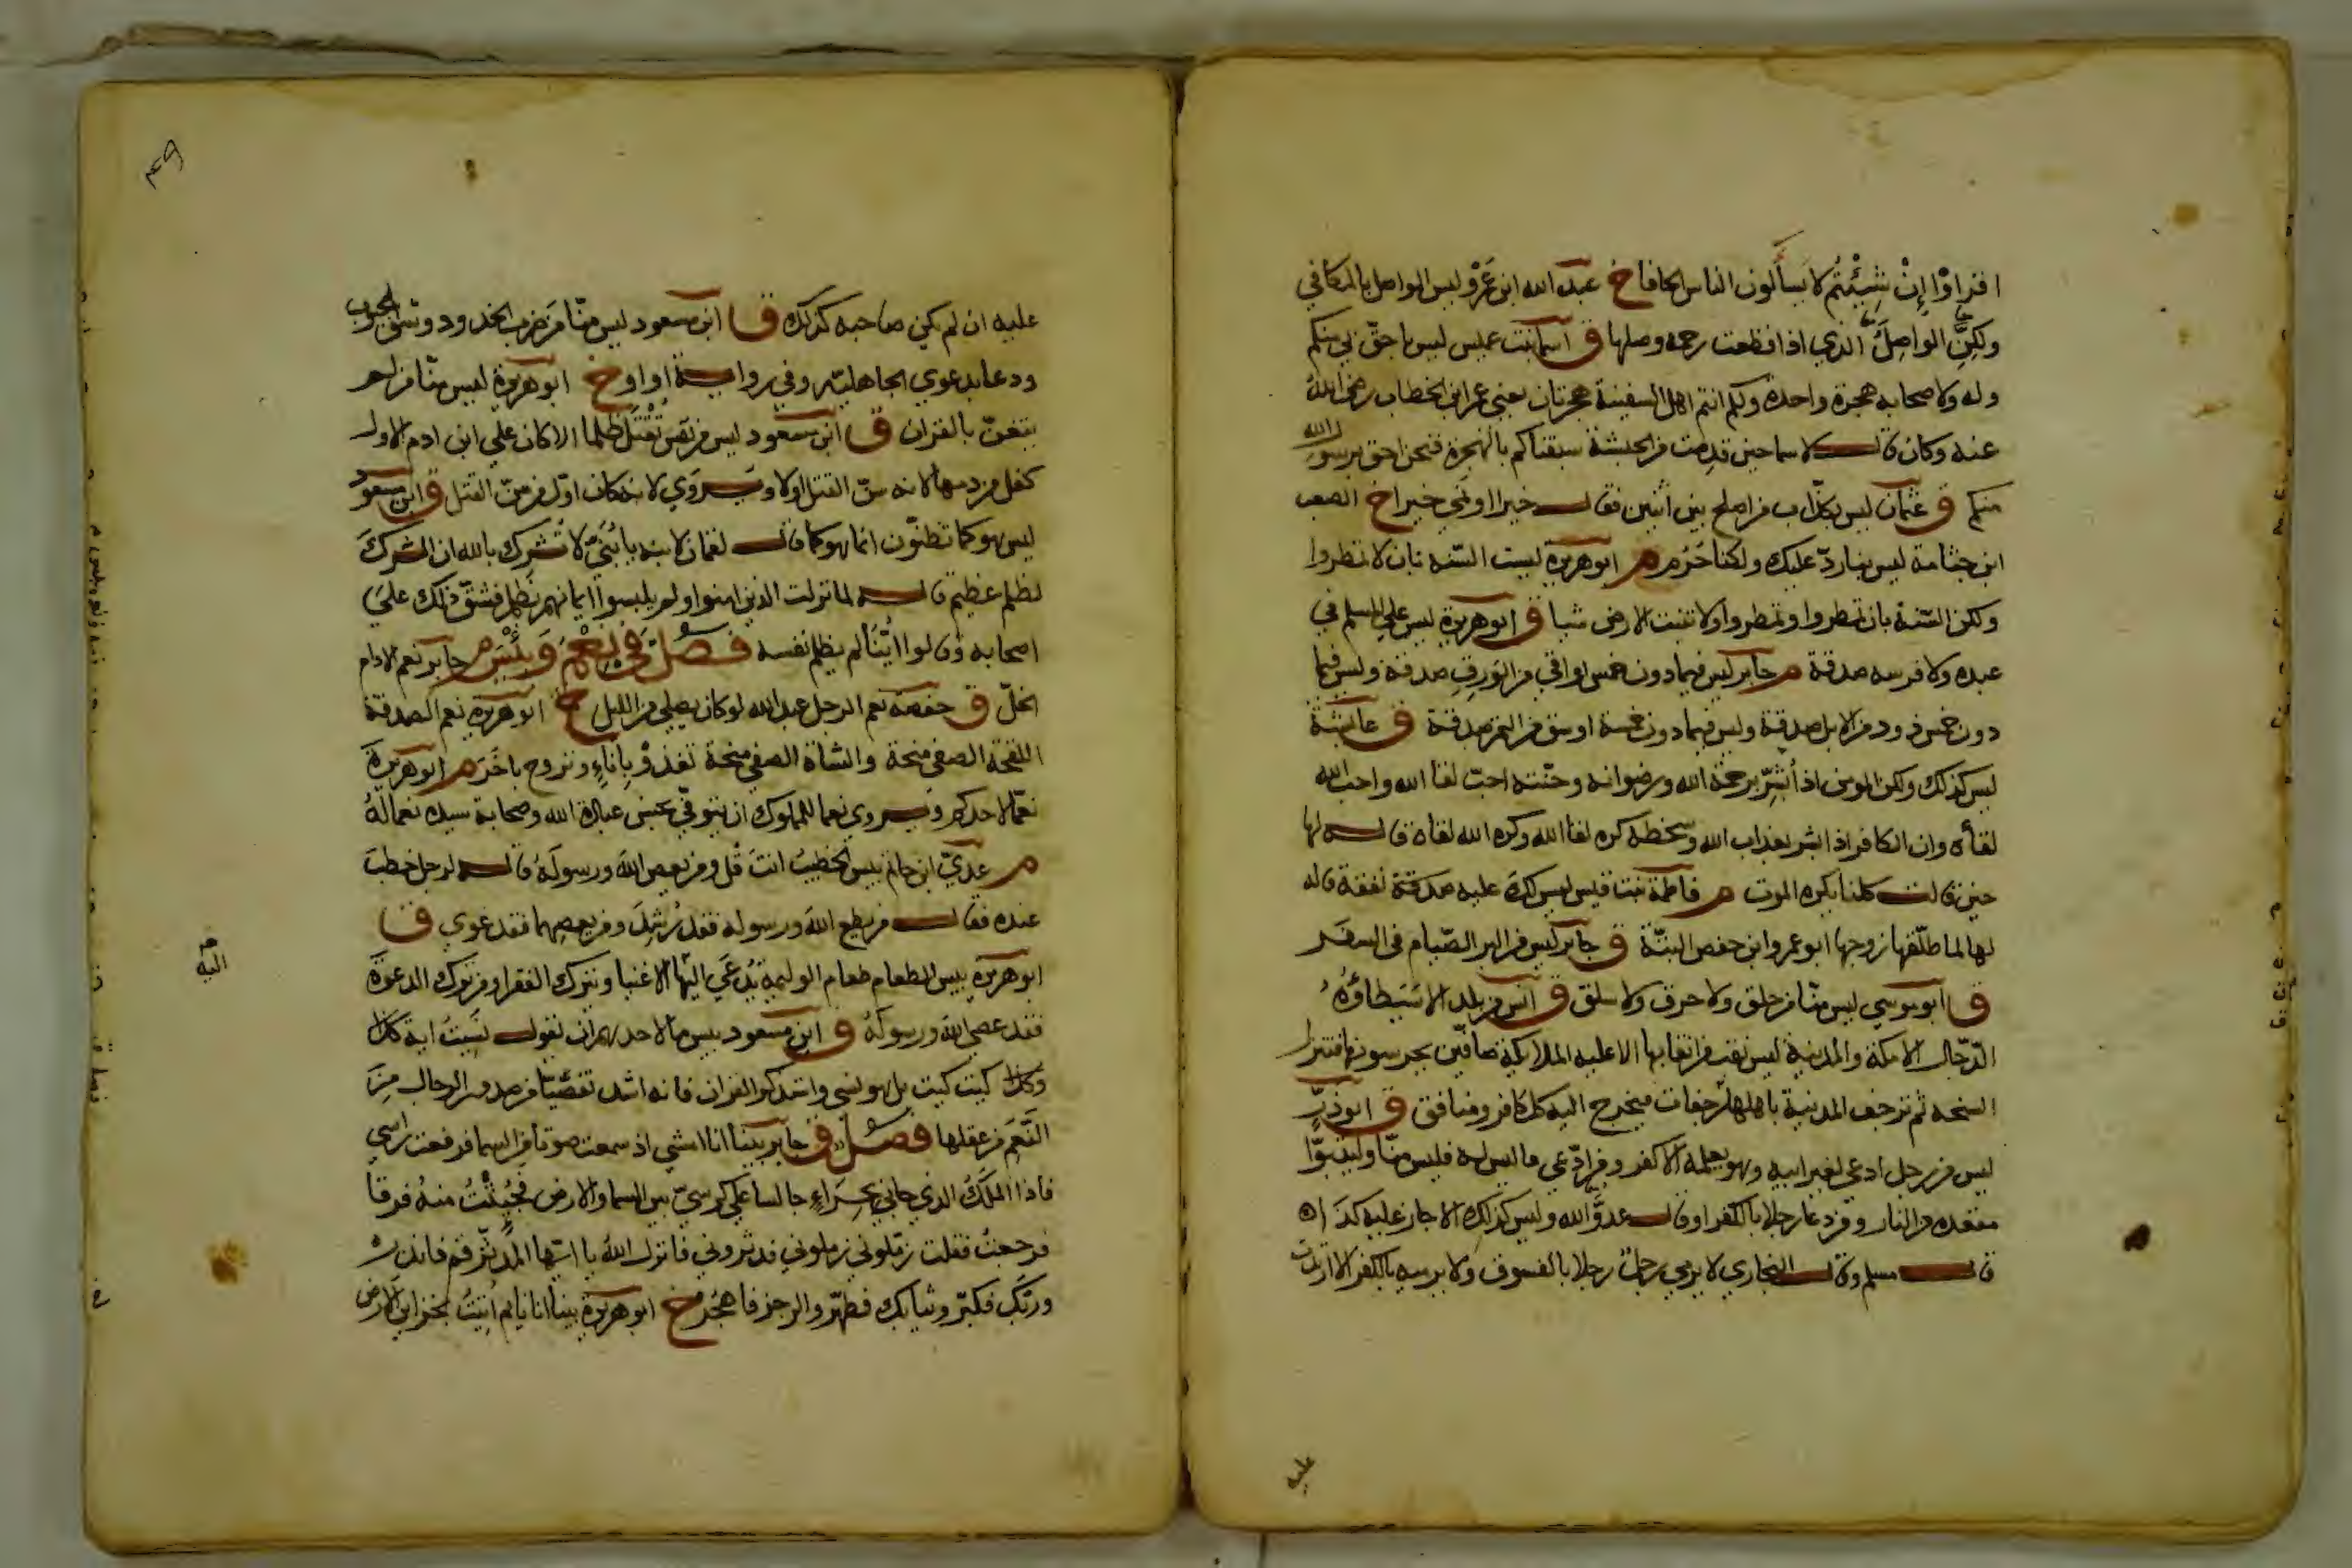 اقراوا إِنْ شِئْتُم لا يَسألون الناس الحافا خ عبد الله ابن عَمْرو ليس الواصل بالمكافي
ولكنَّ الواصِلَ الذي اذا قطعت رحمه وصلها ق اسما بنت عميس ليس باحقّ بي منكم
وله ولاصحابه هجرة واحدة ولكم انتم اهل السفينة هجرتان يعني عمر ابن الخطاب رضي الله
عنه وكان قال لاسما حين قدِمت من الحبشة سبقناكم بالهجرة فنحن احق برسول الله
منكم ق عثمان ليس بكذّاب من اصلح بين اثنين فقال خيرا او نمى خيرا خ الصعب
ابن جثامة ليس بنا ردّ عليك ولكنا حُرُم م ابو هريرة ليست السّنه بان لا تمطروا
ولكن السّنة بان تمطروا وتمطروا ولا تنبت الارض شيا ق ابو هريرة ليس علي المسلم في
عبده ولا فرسه صدقة م جابر ليس فيما دون خمس اواقي من الوَرِقِ صدقة وليس فيما
دون خمس ذود من الابل صدقة وليس فيما دون خمسة اوسق من التمر صدقة ق عايشة
ليس كذلك ولكن المومن اذا بُشِّر برحمة الله ورضوانه وجنته احبّ لقا الله واحب الله
لقأه وان الكافر اذا بشر بعذاب الله وسخطه كره لقا الله وكره الله لقاه قاله لها
حين قالت كلنا يكره الموت م فاطمة بنت قيس ليس لكَ عليه صدقة نفقة قاله
لها لما طلّقها زوجها ابو عمرو ابن حفص البتّة ق جابر ليس من البر الصّيام في السفر
ق ابو موسي ليس منّا من حلق ولا حرق ولا سلق ق انس من بلد الا سَيَطاؤُهُ
الدّجال الا مكة والمدينة ليس نقب من انقابها الا عليه الملايكة صافّين يحرسونها فينزل
السبخه ثم ترجف المدينة باهلها ثلاث رجفات فيخرج اليه كل كافر ومنافق ق ابو ذرّ
ليس من رجل ادعي لغير ابيه وهو يعلمه الا كفر ومن ادّعي ما ليس له فليس منّا وليتبوّا
مقعده من النار ومن دعا رجلا بالكفر او قال عدوَّ الله وليس كذلك الا حار عليه كذا
قال مسلم وقال البخاري لا يرمي رجل رجلا بالفسوق ولا يرميه بالكفر الا ارتدت
عليه
عليه ان لم يكن صاحبه كذلك ق ابن مسعود ليس منّا من ضرب الخدود وشق الجيوب
ودعا بدعوي الجاهليّه وفي رواية او او خ ابو هريرة ليس منّا من لم
يتغنّ بالقران ق ابن مسعود ليس من نفس تُقْتَل ظلما الا كان علي ابن ادم الاول
كفل من دمها لانه سنّ القتل اولا ويروي لانه كان اوّل من سنّ القتل ق ابن مسعود
ليس هو كما تظنّون انما هو كما قال لقمان لابنه يا بُنَيَّ لا تُشرك بالله ان الشرك
لظلم عظيم قاله لما نزلت الذين امنوا ولم يلبسوا ايمانهم بظلم فشقّ ذلك عليَ
اصحابه وقالوا ايُّنا لم يظلم نفسه فصل في نِعْمَ وَبِئْسَ م جابر نعم الادام
الخلّ ق حفصه نعم الرجل عبد الله لو كان يصلي من الليل خ ابو هريره نعم الصدقة
اللقحة الصفي منحة والشاة الصفي منحة تغدُوْ بإناءٍ وتروح باخَرَ م ابو هريرة
نعمّا لاحدكم ويروي نعما للمملوك ان يتوفّي يحسن عبادة الله وصحابة سيده نعما لَهُ
م عديّ ابن حاتم بيس الخطيبُ انتَ قُل ومن يعص الله ورسولَهُ قاله لرجل خطبَ
عنده فقال من يطع الله ورسوله فقد رُشِدَ ومن يعصهما فقد غوي ق
ابو هريرة بيس الطعام طعام الوليمة يُدعَي اليها الاغنيا ويترك الفقرا ومن ترك الدعوة
اليه
فقد عصي الله ورسولَهُ ق ابن مسعود بيس ما لاحدهم ان يقول نَسِيتُ اية كذا
وكذا كيت كيت بل هو نسي واستذكروا القران فانه اشد تفصّيا من صدور الرجال مِنَ
النَّعَم من عقلها فصل ق جابر بينا انا امشي اذ سمعت صوتا من السما فرفعت راسي
فاذا الملَكُ الذي جاني بحِرَاءٍ جالسا علي كرسيّ بين السما والارض فجُئِثْتُ منهُ فرقا
فرجعتُ فقلت زمّلوني زملوني فدثروني فانزل اللهُ يا ايها المدّثر قم فانذر
وربّك فكبّر وثيابك فطهّر والرجز فاهجُر خ ابو هريرة بينا انا نايم أُتِيتُ بخزاين الارض